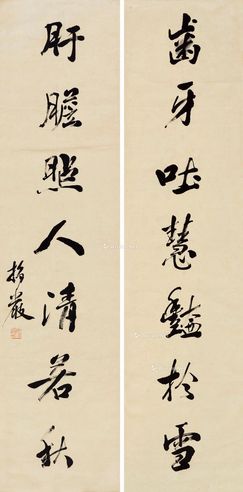 齒牙吐慧豔於雪
肝膽照人清若秋
指嚴